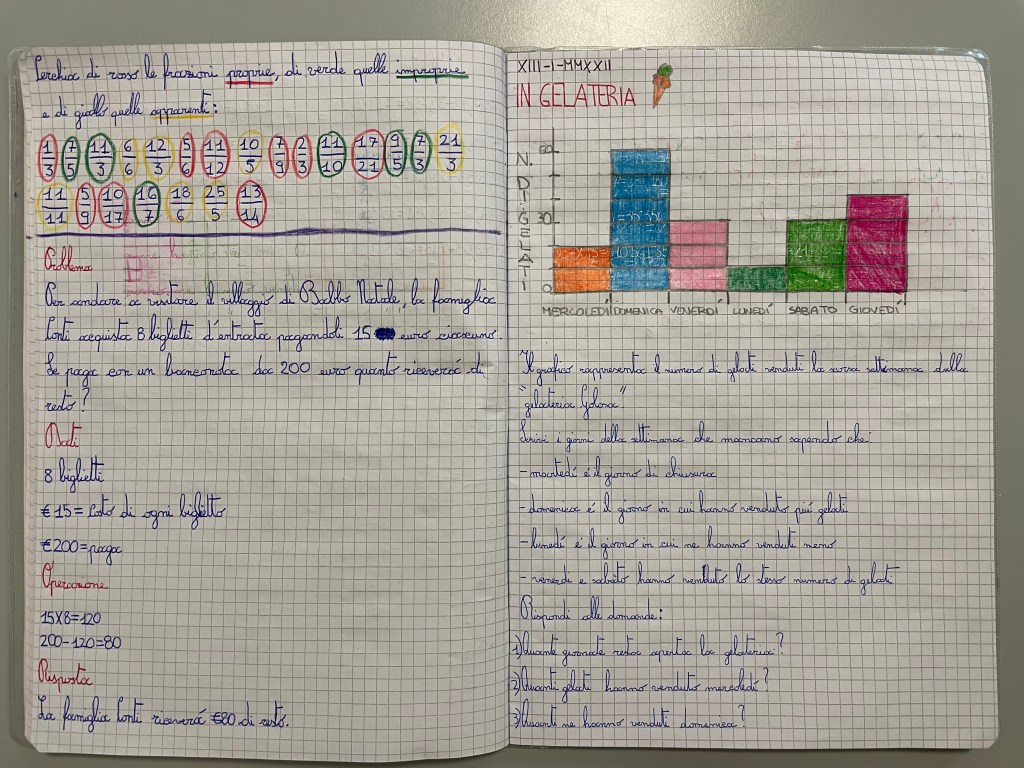 Cerchia di rosso le frazioni proprie, di verde quelle improprie
e di giallo quelle apparenti:
1/3 7/5 11/3 6/6 12/3 5/6 11/12 10/5 7/9 2/3 11/10 17/21 9/5 7/3 21/3
11/11 5/9 10/17 16/7 18/6 25/5 13/14
Problema
Per andare a visitare il villaggio di Babbo Natale, la famiglia
Conti acquista 8 biglietti d'entrata pagandoli 15 euro ciascuno.
Se paga con un banconota da 200 euro quanto riceverá di
resto?
Dati
8 biglietti
€15=Costo di ogni biglietto
€200=paga
Operazione
15X8=120
200-120=80
Risposta
La famiglia Conti riceverá €80 di resto.
XIII-I-MMXXII
IN GELATERIA
60
30
0
N. DI GELATI
MERCOLEDÍ DOMENICA VENERDÍ LUNEDÍ SABATO GIOVEDÍ
Il grafico rappresenta il numero di gelati venduti la scorsa settimana dalla
"gelateria Golosa".
Scrivi i giorni della settimana che mancano sapendo che:
-martedí é il giorno di chiusura
-domenica é il giorno in cui hanno venduto piú gelati
-lunedí é il giorno in cui ne hanno venduti meno
-venerdí e sabato hanno venduto lo stesso numero di gelati
Rispondi alle domande:
1)Quante giornate resta aperta la gelateria?
2)Quanti gelati hanno venduto mercoledí?
3)Quanti ne hanno venduti domenica?